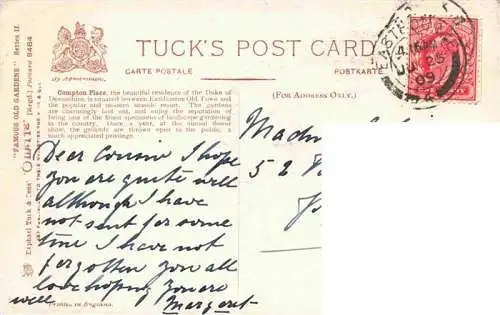 TUCK'S POST CARD
CARTE POSTALE
POSTKARTE
(FOR ADDRESS ONLY.)
Compton Place, the beautiful residence of the Duke of
Devonshire, is situated between Eastbourne Old Town and
the popular and western seaside resort. The gardens
are charmingly laid out, and enjoy the reputation of
being one of the finest specimens of landscape gardening
in the country. Once a year, at the annual flower
show, the grounds are thrown open to the public, a
much appreciated privilege.
Dear Cousin I hope
you are quite well
although I have
not sent for some
time I have not
forgotten you all
love hoping you are
well Margaret
5 2
Raphael Tuck & Sons' "OILETTE" [Regd.] Postcard 6464
"FAMOUS OLD GARDENS" Series II.